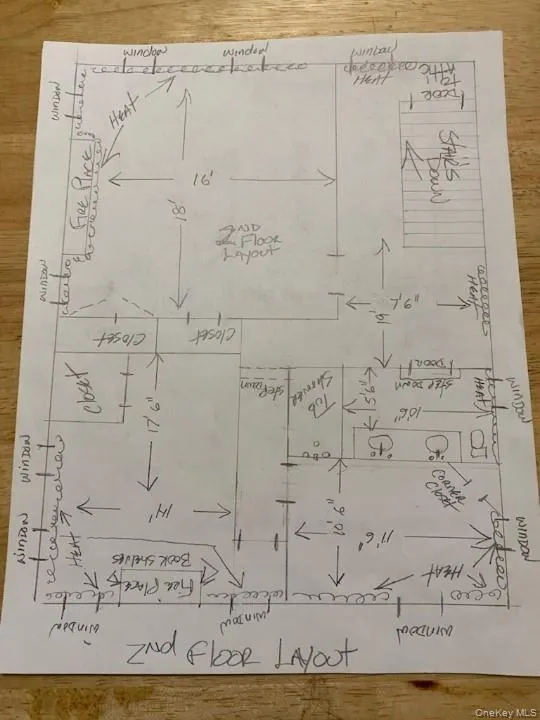 WINDOW
WINDOW
WINDOW
HEAT
DOOR
TO
ATTIC
WINDOW
HEAT
FIRE PLACE
STAIRS
DOWN
18'
2ND
FLOOR
LAYOUT
WINDOW
9'7"
HEAT
CLOSET
CLOSET
CLOSET
STEP DOWN
TUB
SHOWER
5'9"
DOOR
STEP DOWN
10'6"
HEAT
WINDOW
17'6"
WINDOW
CORNER
CLOSET
14'
10'9"
11'6"
WINDOW
HEAT
WINDOW
BOOK SHELVES
FIRE PLACE
HEAT
WINDOW
WINDOW
WINDOW
WINDOW
2ND FLOOR LAYOUT
OneKey MLS